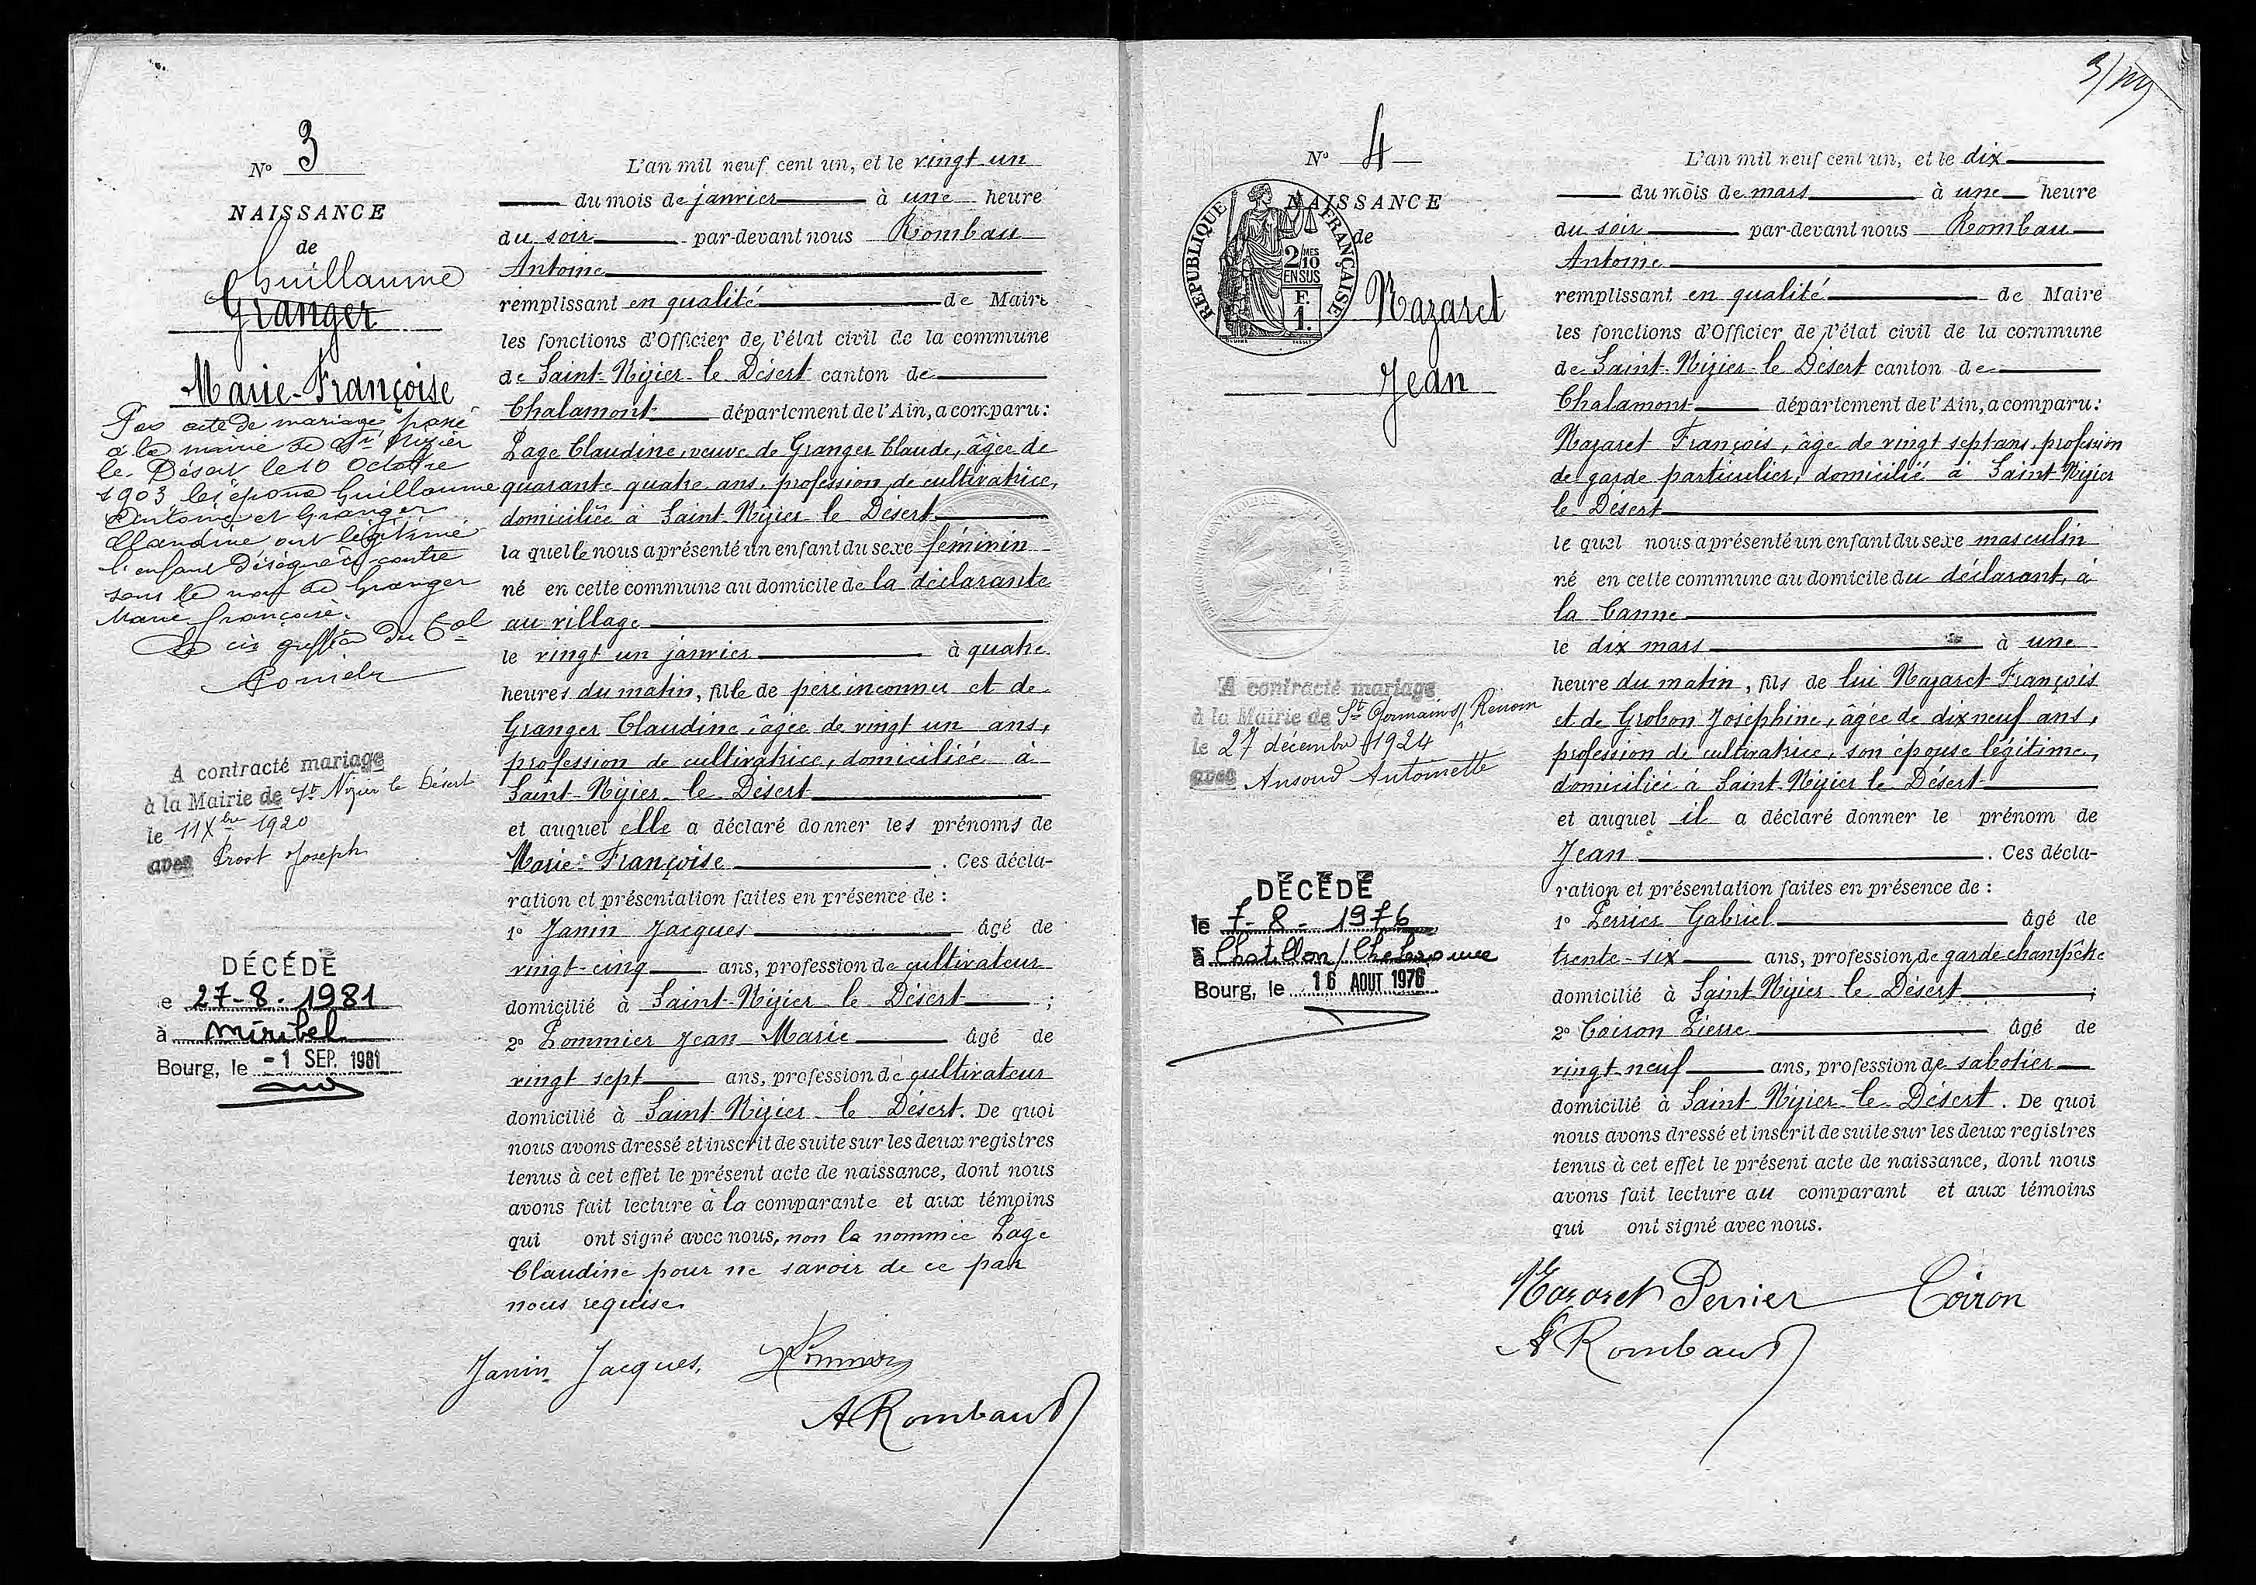 N° 3
NAISSANCE
de
Guillaume
Granger
Marie-Françoise
Par acte de mariage passé
à la mairie de St Nizier
le Désert le 10 Octobre
1903 les époux Guillaume
Antoine et Granger
Claudine ont légitimé
l'enfant désigné ci-contre
sous le nom de Granger
Marie Françoise.
A contracté mariage
à la Mairie de St Nizier le Désert
le 11 Xbre 1920
avec Prost Joseph
DÉCÉDÉ
le 27-8-1981
à Miribel
Bourg, le -1 SEP. 1981
L'an mil neuf cent un, et le vingt un
du mois de janvier à une heure
du soir par-devant nous Rombau
Antoine
remplissant en qualité de Maire
les fonctions d'Officier de l'état civil de la commune
de Saint-Nizier-le Désert canton de
Chalamont département de l'Ain, a comparu:
Page Claudine, veuve de Granger Claude, âgée de
quarante quatre ans, profession de cultivatrice,
domiciliée à Saint-Nizier-le Désert
la quelle nous a présenté un enfant du sexe féminin
né en cette commune au domicile de la déclarante
au village
le vingt un janvier à quatre
heures du matin, fille de père inconnu et de
Granger Claudine, âgée de vingt un ans,
profession de cultivatrice, domiciliée à
Saint-Nizier-le Désert
et auquel elle a déclaré donner les prénoms de
Marie-Françoise. Ces décla-
ration et présentation faites en présence de :
1° Janin Jacques âgé de
vingt-cinq ans, profession de cultivateur
domicilié à Saint-Nizier-le Désert ;
2° Pommier Jean Marie âgé de
vingt sept ans, profession de cultivateur
domicilié à Saint-Nizier-le Désert. De quoi
nous avons dressé et inscrit de suite sur les deux registres
tenus à cet effet le présent acte de naissance, dont nous
avons fait lecture à la comparante et aux témoins
qui ont signé avec nous, non la nommée Page
Claudine pour ne savoir de ce par
nous requise
Janin Jacques. Pommier
A Rombaud
3/
N° 4
NAISSANCE
de
RÉPUBLIQUE FRANÇAISE
2/10MES
EN SUS
F.
1.
Nazaret
Jean
A contracté mariage
à la Mairie de St Germain s/ Renom
le 27 décembre 1924
avec Antoinette
DÉCÉDÉ
le 7-8-1976
à Chatillon/Chalaronne
Bourg, le 16 AOUT 1976
L'an mil neuf cent un, et le dix
du mois de mars à une heure
du soir par-devant nous Rombau
Antoine
remplissant en qualité de Maire
les fonctions d'Officier de l'état civil de la commune
de Saint-Nizier-le Désert canton de
Chalamont département de l'Ain, a comparu:
Nazaret François, âgé de vingt sept ans, profession
de garde particulier, domicilié à Saint-Nizier
le Désert
le quel nous a présenté un enfant du sexe masculin
né en cette commune au domicile du déclarant, à
la Canne
le dix mars à une
heure du matin, fils de lui Nazaret François
et de Grobon Joséphine, âgée de dix neuf ans,
profession de cultivatrice, son épouse légitime,
domiciliée à Saint-Nizier le Désert
et auquel il a déclaré donner le prénom de
Jean. Ces décla-
ration et présentation faites en présence de :
1° Perrier Gabriel âgé de
trente-six ans, profession de garde champêtre
domicilié à Saint Nizier-le Désert ;
2° Coiron Pierre âgé de
vingt-neuf ans, profession de sabotier
domicilié à Saint Nizier-le-Désert. De quoi
nous avons dressé et inscrit de suite sur les deux registres
tenus à cet effet le présent acte de naissance, dont nous
avons fait lecture au comparant et aux témoins
qui ont signé avec nous.
Nazaret Perrier Coiron
A Rombaud